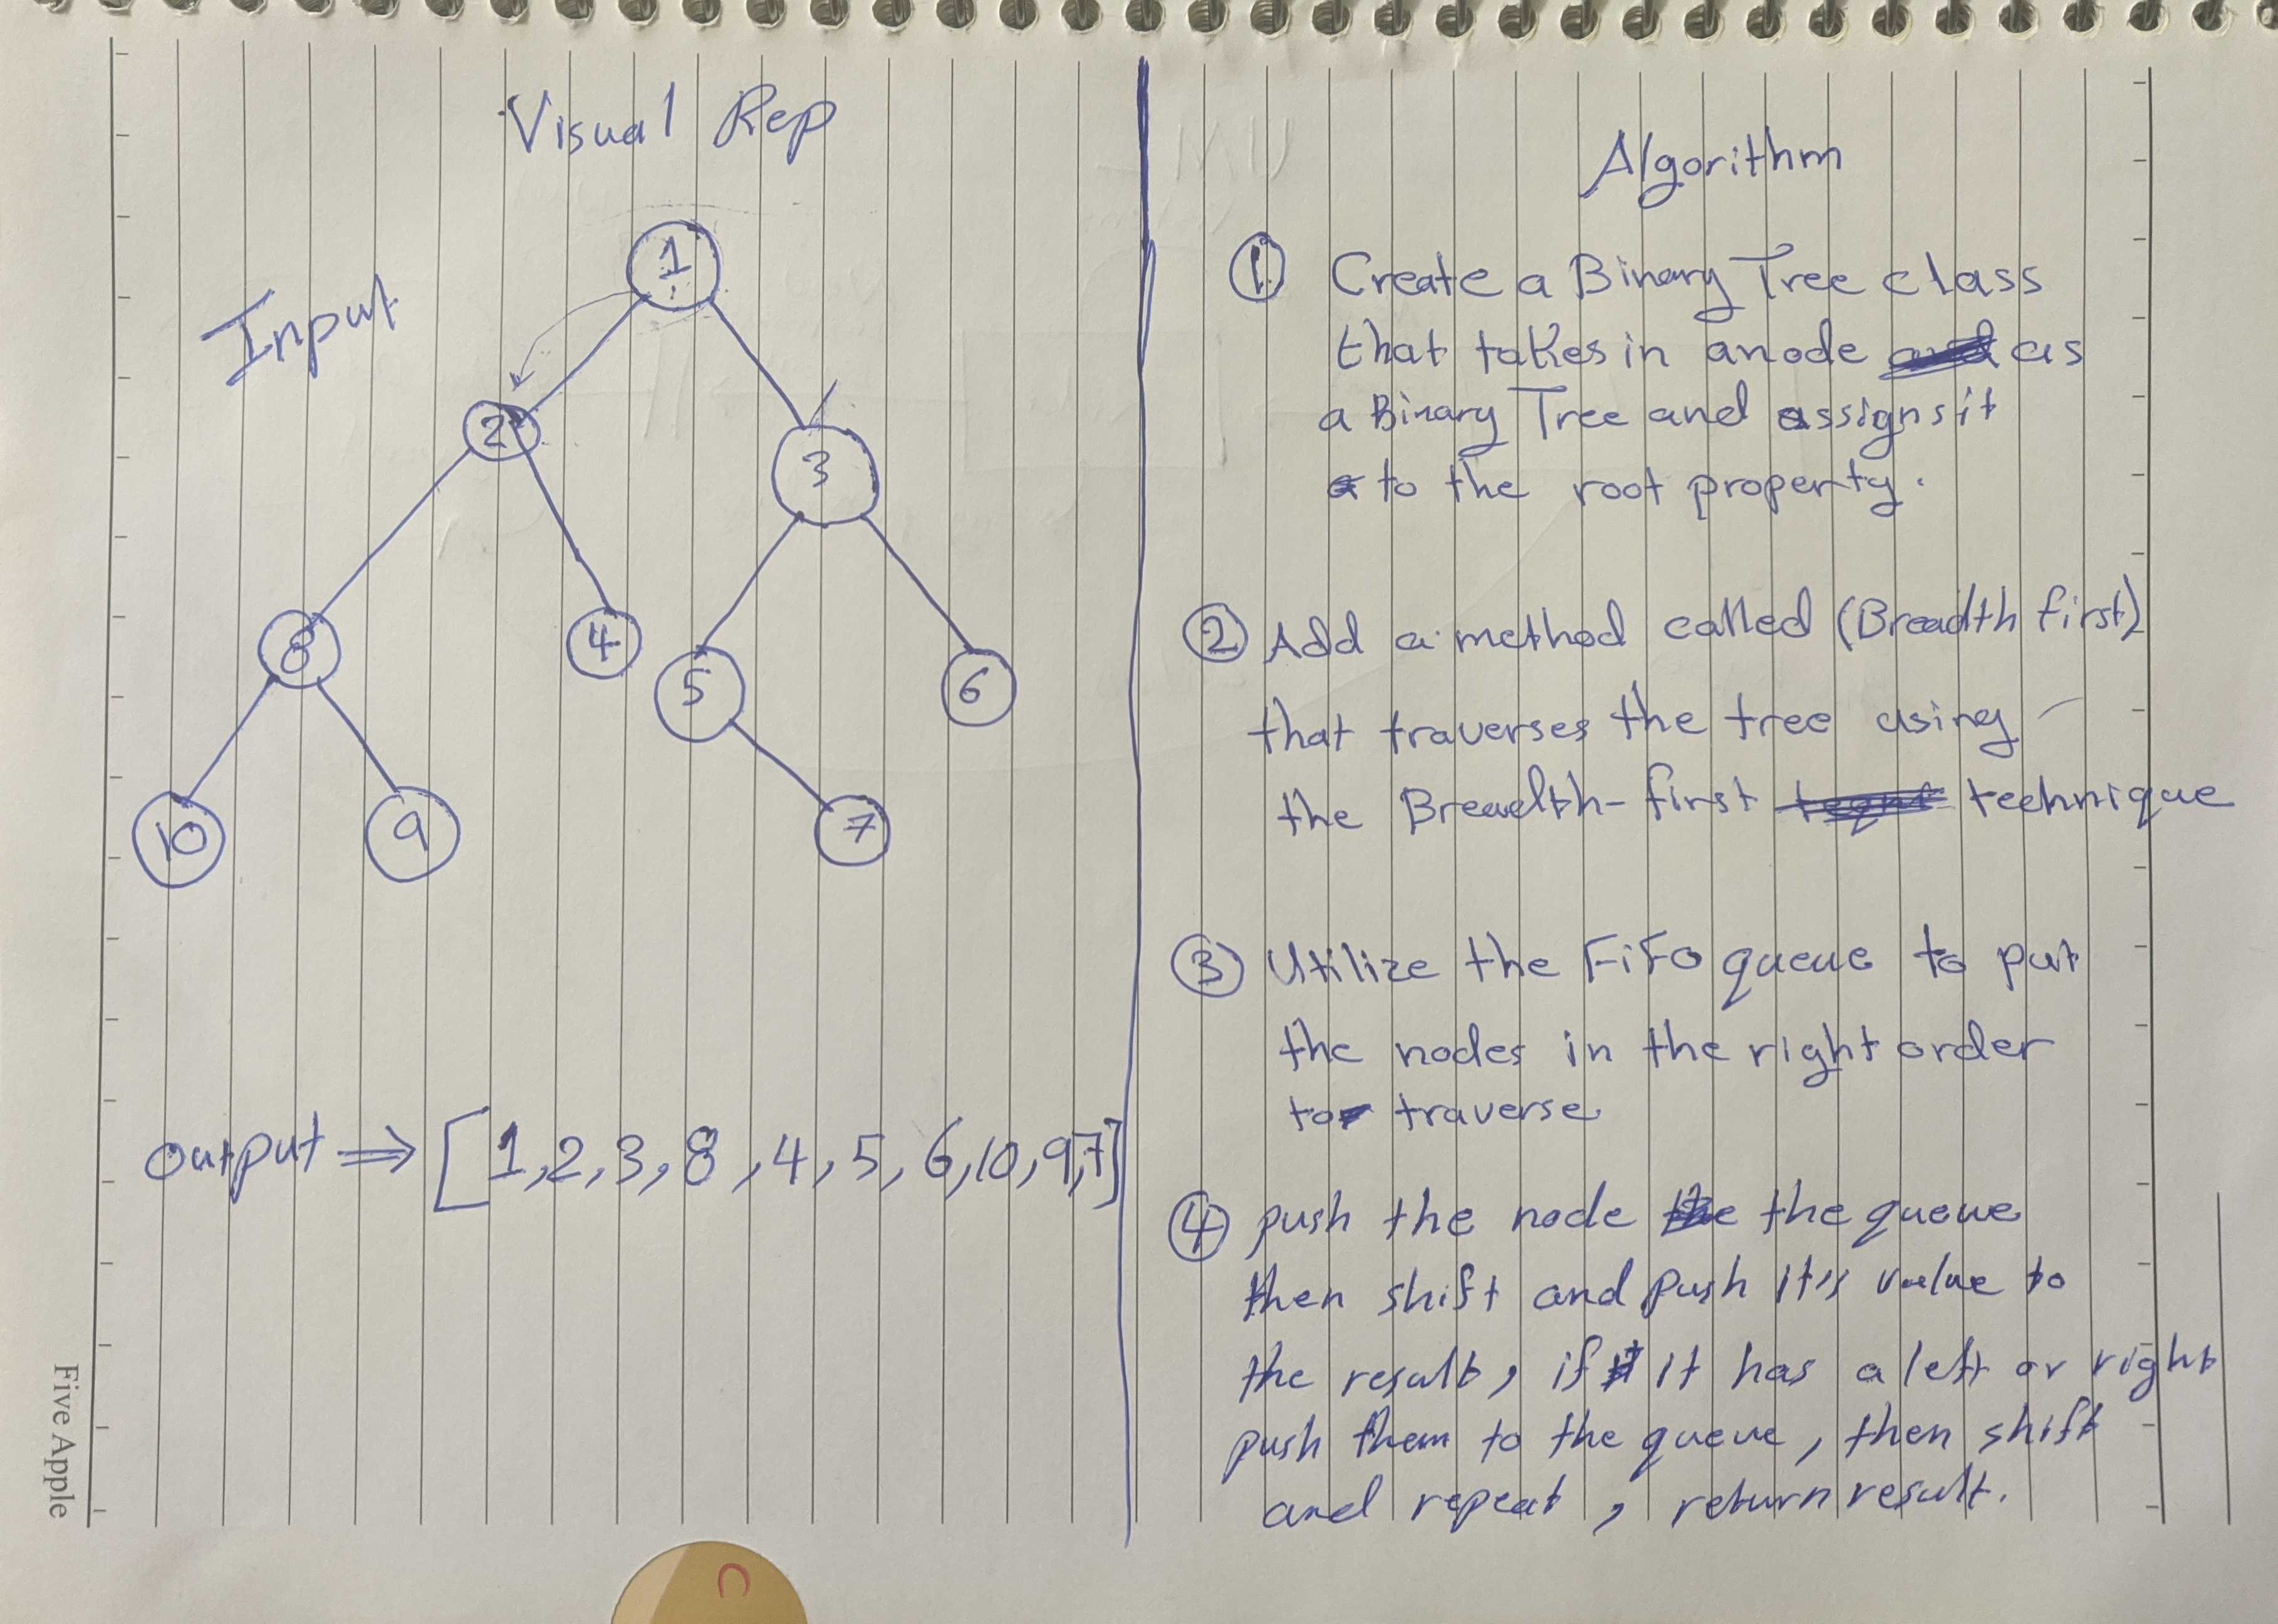 Visual Rep
Input
1
2
3
8
4
5
6
10
9
7
output ⇒ [1,2,3,8,4,5,6,10,9,7]
Algorithm
1. Create a Binary Tree class
that takes in a node as
a Binary Tree and assigns it
to the root property.
2 Add a method called (Breadth first)
that traverses the tree using
the Breadth-first technique
3 Utilize the FiFo queue to put
the nodes in the right order
to traverse
4 push the node the queue
then shift and push it's value to
the result, if it has a left or right
push them to the queue, then shift
and repeat, return result.
Five Apple
C